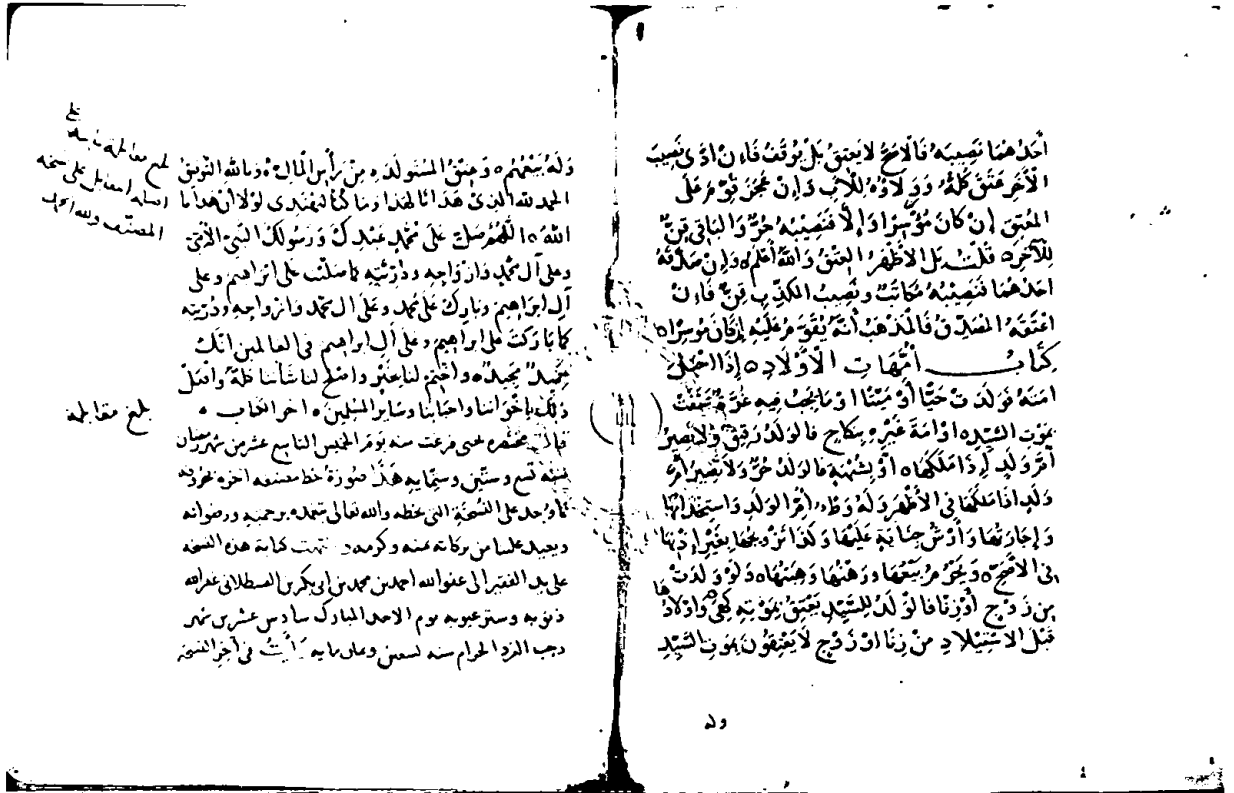 أحدهما نصيبه فالأصح لا يعتق بل يوقف فإن أدى نصيب
الآخر عتق كله وولاؤه للأب وإن عجز قوم على
المعتق إن كان موسرا وإلا فنصيبه حر والباقي قن
للآخر قلت بل الأظهر العتق والله أعلم وإن صدقه
أحدهما فنصيبه مكاتب ونصيب المكذب قن فإن
أعتقه المصدق فالمذهب أنه يقوم عليه إن كان موسرا
كتاب أمهات الأولاد إذا أحبل
أمته فولدت حيا أو ميتا أو ما يجب فيه غرة عتقت
بموت السيد أو أمة غيره بنكاح فالولد رقيق ولا تصير
أم ولد إذا ملكها أو بشبهة فالولد حر ولا تصير أم
ولد إذا ملكها في الأظهر وله وطء أم الولد واستخدامها
وإجارتها وأرش جناية عليها وكذا تزويجها بغير إذنها
في الأصح ويحرم بيعها ورهنها وهبتها ولو ولدت
من زوج أو زنا فالولد للسيد يعتق بموته كهي وأولادها
قبل الاستيلاد من زنا أو زوج لا يعتقون بموت السيد
وله
وله بيعهم وعتق المستولدة من رأس المال وبالله التوفيق
الحمد لله الذي هدانا لهذا وما كنا لنهتدي لولا أن هدانا
الله اللهم صل على محمد عبدك ورسولك النبي الأمي
وعلى آل محمد وأزواجه وذريته كما صليت على إبراهيم وعلى
آل إبراهيم وبارك على محمد وعلى آل محمد وأزواجه وذريته
كما باركت على إبراهيم وعلى آل إبراهيم في العالمين إنك
حميد مجيد واختم لنا بخير وأصلح لنا شأننا كله وافعل
ذلك بإخواننا وأحبابنا وسائر المسلمين آخر الكتاب
قال مختصره يحيى فرغت منه يوم الخميس التاسع عشر من شهر رمضان
سنة تسع وستين وستمايه هذا صورة خط مصنفه آخره
كما وجد على النسخة التي بخطه والله تعالى يتغمده برحمته ورضوانه
ويعيد علينا من بركاته بمنه وكرمه تمت كتابة هذه النسخة
على يد الفقير إلى عفو الله أحمد بن محمد بن أبي بكر بن القسطلاني غفر الله
ذنوبه وستر عيوبه يوم الأحد المبارك سادس عشرين شهر
رجب الفرد الحرام سنة تسعين وثمان مايه رأيت في آخر النسخة
بلغ
بلغ مقابلة
أصله المقابل على نسخة
المصنف ولله الحمد
بلغ مقابلة